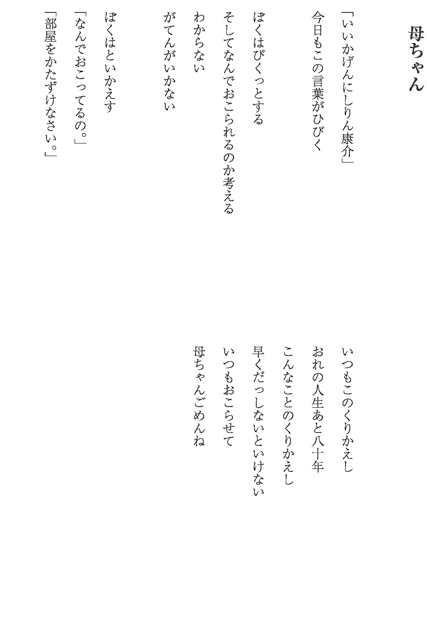 母ちゃん
「いいかげんにしりん康介」
今日もこの言葉がひびく
ぼくはびくっとする
そしてなんでおこられるのか考える
わからない
がてんがいかない
ぼくはといかえす
「なんでおこってるの。」
「部屋をかたずけなさい。」
いつもこのくりかえし
おれの人生あと八十年
こんなことのくりかえし
早くだっしないといけない
いつもおこらせて
母ちゃんごめんね